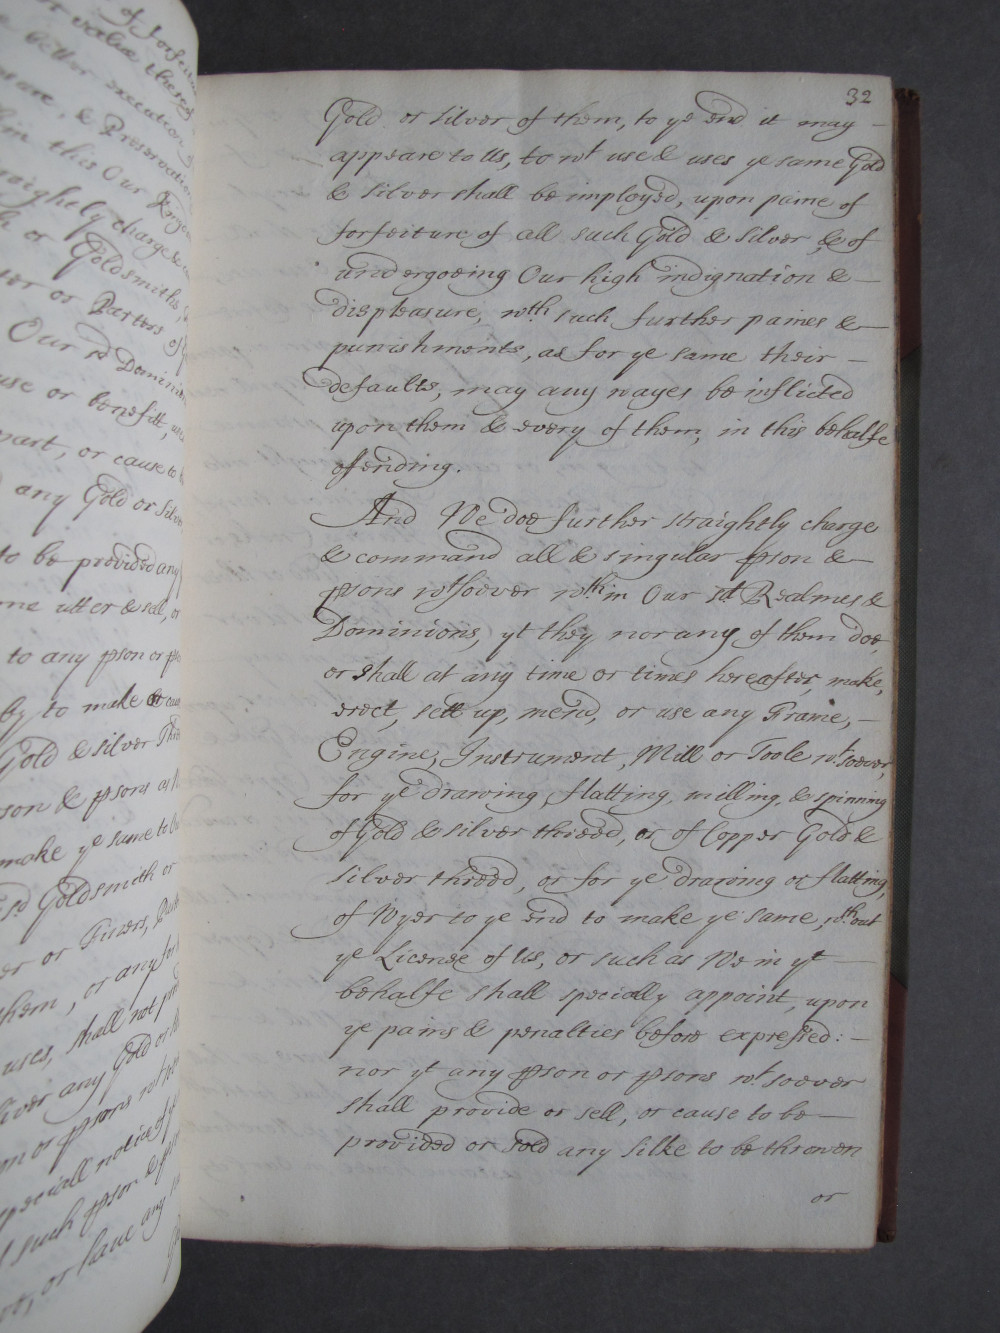 of Forfeitu
or value thereof
better execution of
& Preservation
in this Our
straightly charge &
or Goldsmiths,
or Parters of
Our sd Dominio
use or benefitt,
mart, or cause to
any Gold or Silve
to be provided any
utter & sell, or
to any pson or pso
by to make or cau
Gold & Silver Thre
son & psons
make ye same to
sd Goldsmith or
or Finers,
them, or any
uses, shall not
any Gold or
or psons
speciall notice of
such pson &
or, or have any
32
Gold or Silver of them, to ye end it may —
appeare to Us, to wt use & uses ye same Gold
& Silver shall be imployed, upon paine of
forfeiture of all such Gold & Silver, & of
undergoeing Our high indignation & —
displeasure, wth such further paines & —
punishments, as for ye same their —
defaults, may any wayes be inflicted
upon them & every of them, in this behalfe
offending.
And We doe further straightly charge
& command all & singular pson & —
psons wtsoever wthin Our sd Realmes &
Dominions, yt they nor any of them doe,
or shall at any time or times hereafter, make,
erect, sett up, mend, or use any Frame, —
Engine, Instrument, Mill or Toole wtsoever,
for ye drawing, flatting, milling, & spinning
of Gold & Silver threed, or of Copper Gold &
Silver threed, or for ye drawing or flatting,
of Wyer to ye end to make ye same, wthout
ye License of Us, or such as We in yt —
behalfe shall specially appoint, upon
ye pains & penalties before expressed: —
nor yt any pson or psons wtsoever
shall provide or sell, or cause to be —
provided or sold any Silke to be throwen
or